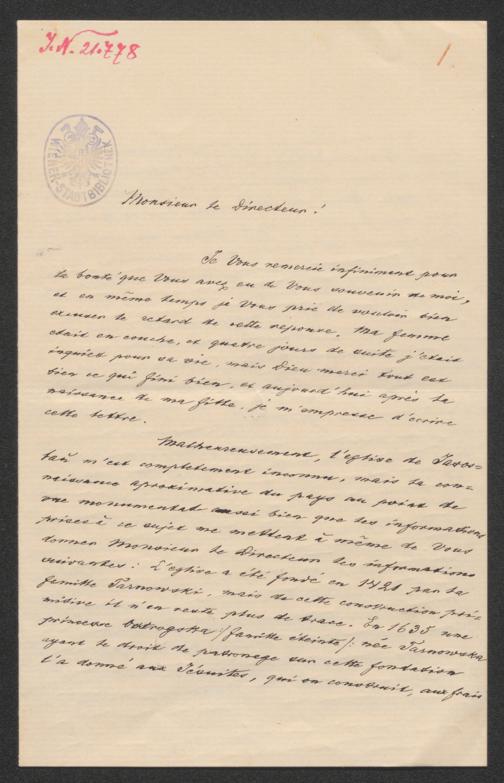 J.N. 21.778
1.
WIENER-STADTBIBLIOTHEK
Monsieur le Directeur!
Je Vous remercie infiniment pour
la bonté que Vous avez eu de Vous souvenir de moi,
et en même temps je Vous prie de vouloir bien
excuser le retard de cette reponse. Ma femme
était en couche, et quatre jours de suite j'était
inquiet pour sa vie, mais Dieu merci tout est
bien ce qui fini bien, et aujourd'hui après la
naissance de ma fille, je m'empresse d'écrire
cette lettre.
Malheureusement, l'église de Jaros=
lau m'est completement inconnu, mais la con-
naissance aproximative du pays au point de
vue monumental aussi bien que les informations
prises à ce sujet me mettent à même de Vous
donner Monsieur le Directeur les informations
suivantes: L'église a été fondé en 1421 par la
famille Tarnowski, mais de cette construction pri-
mitive il n'en reste plus de trace. En 1635 une
princesse Ostrogska /famille éteinte/: née Tarnowska
ayant le droit de patronage sur cette fondation
l'a donné aux Jésuites, qui en construit, aux frais